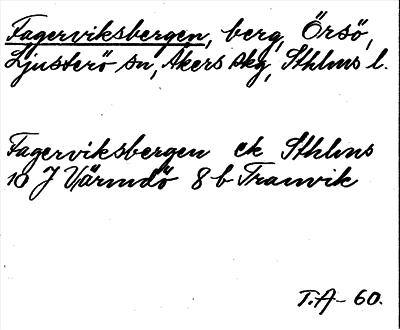 Fagerviksbergen, berg, Örsö,
Ljusterö sn, Åkers skg, Sthlms l.
Fagerviksbergen ek Sthlms
10 J Värmdö 8 b Tranvik
T.A- 60.